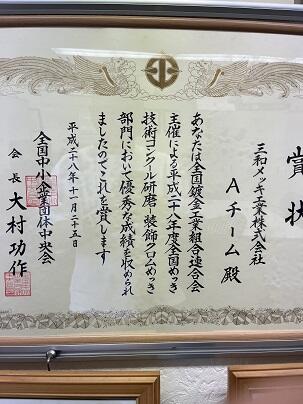 賞状
三和メッキ工業株式会社
Aチーム殿
あなたは全国鍍金工業組合連合会
主催による平成二十八年度全国めっき
技術コンクール研磨・装飾クロムめっき
部門において優秀な成績を収められ
ましたのでこれを賞します
平成二十八年十一月二十五日
全国中小企業団体中央会
会長 大村功作